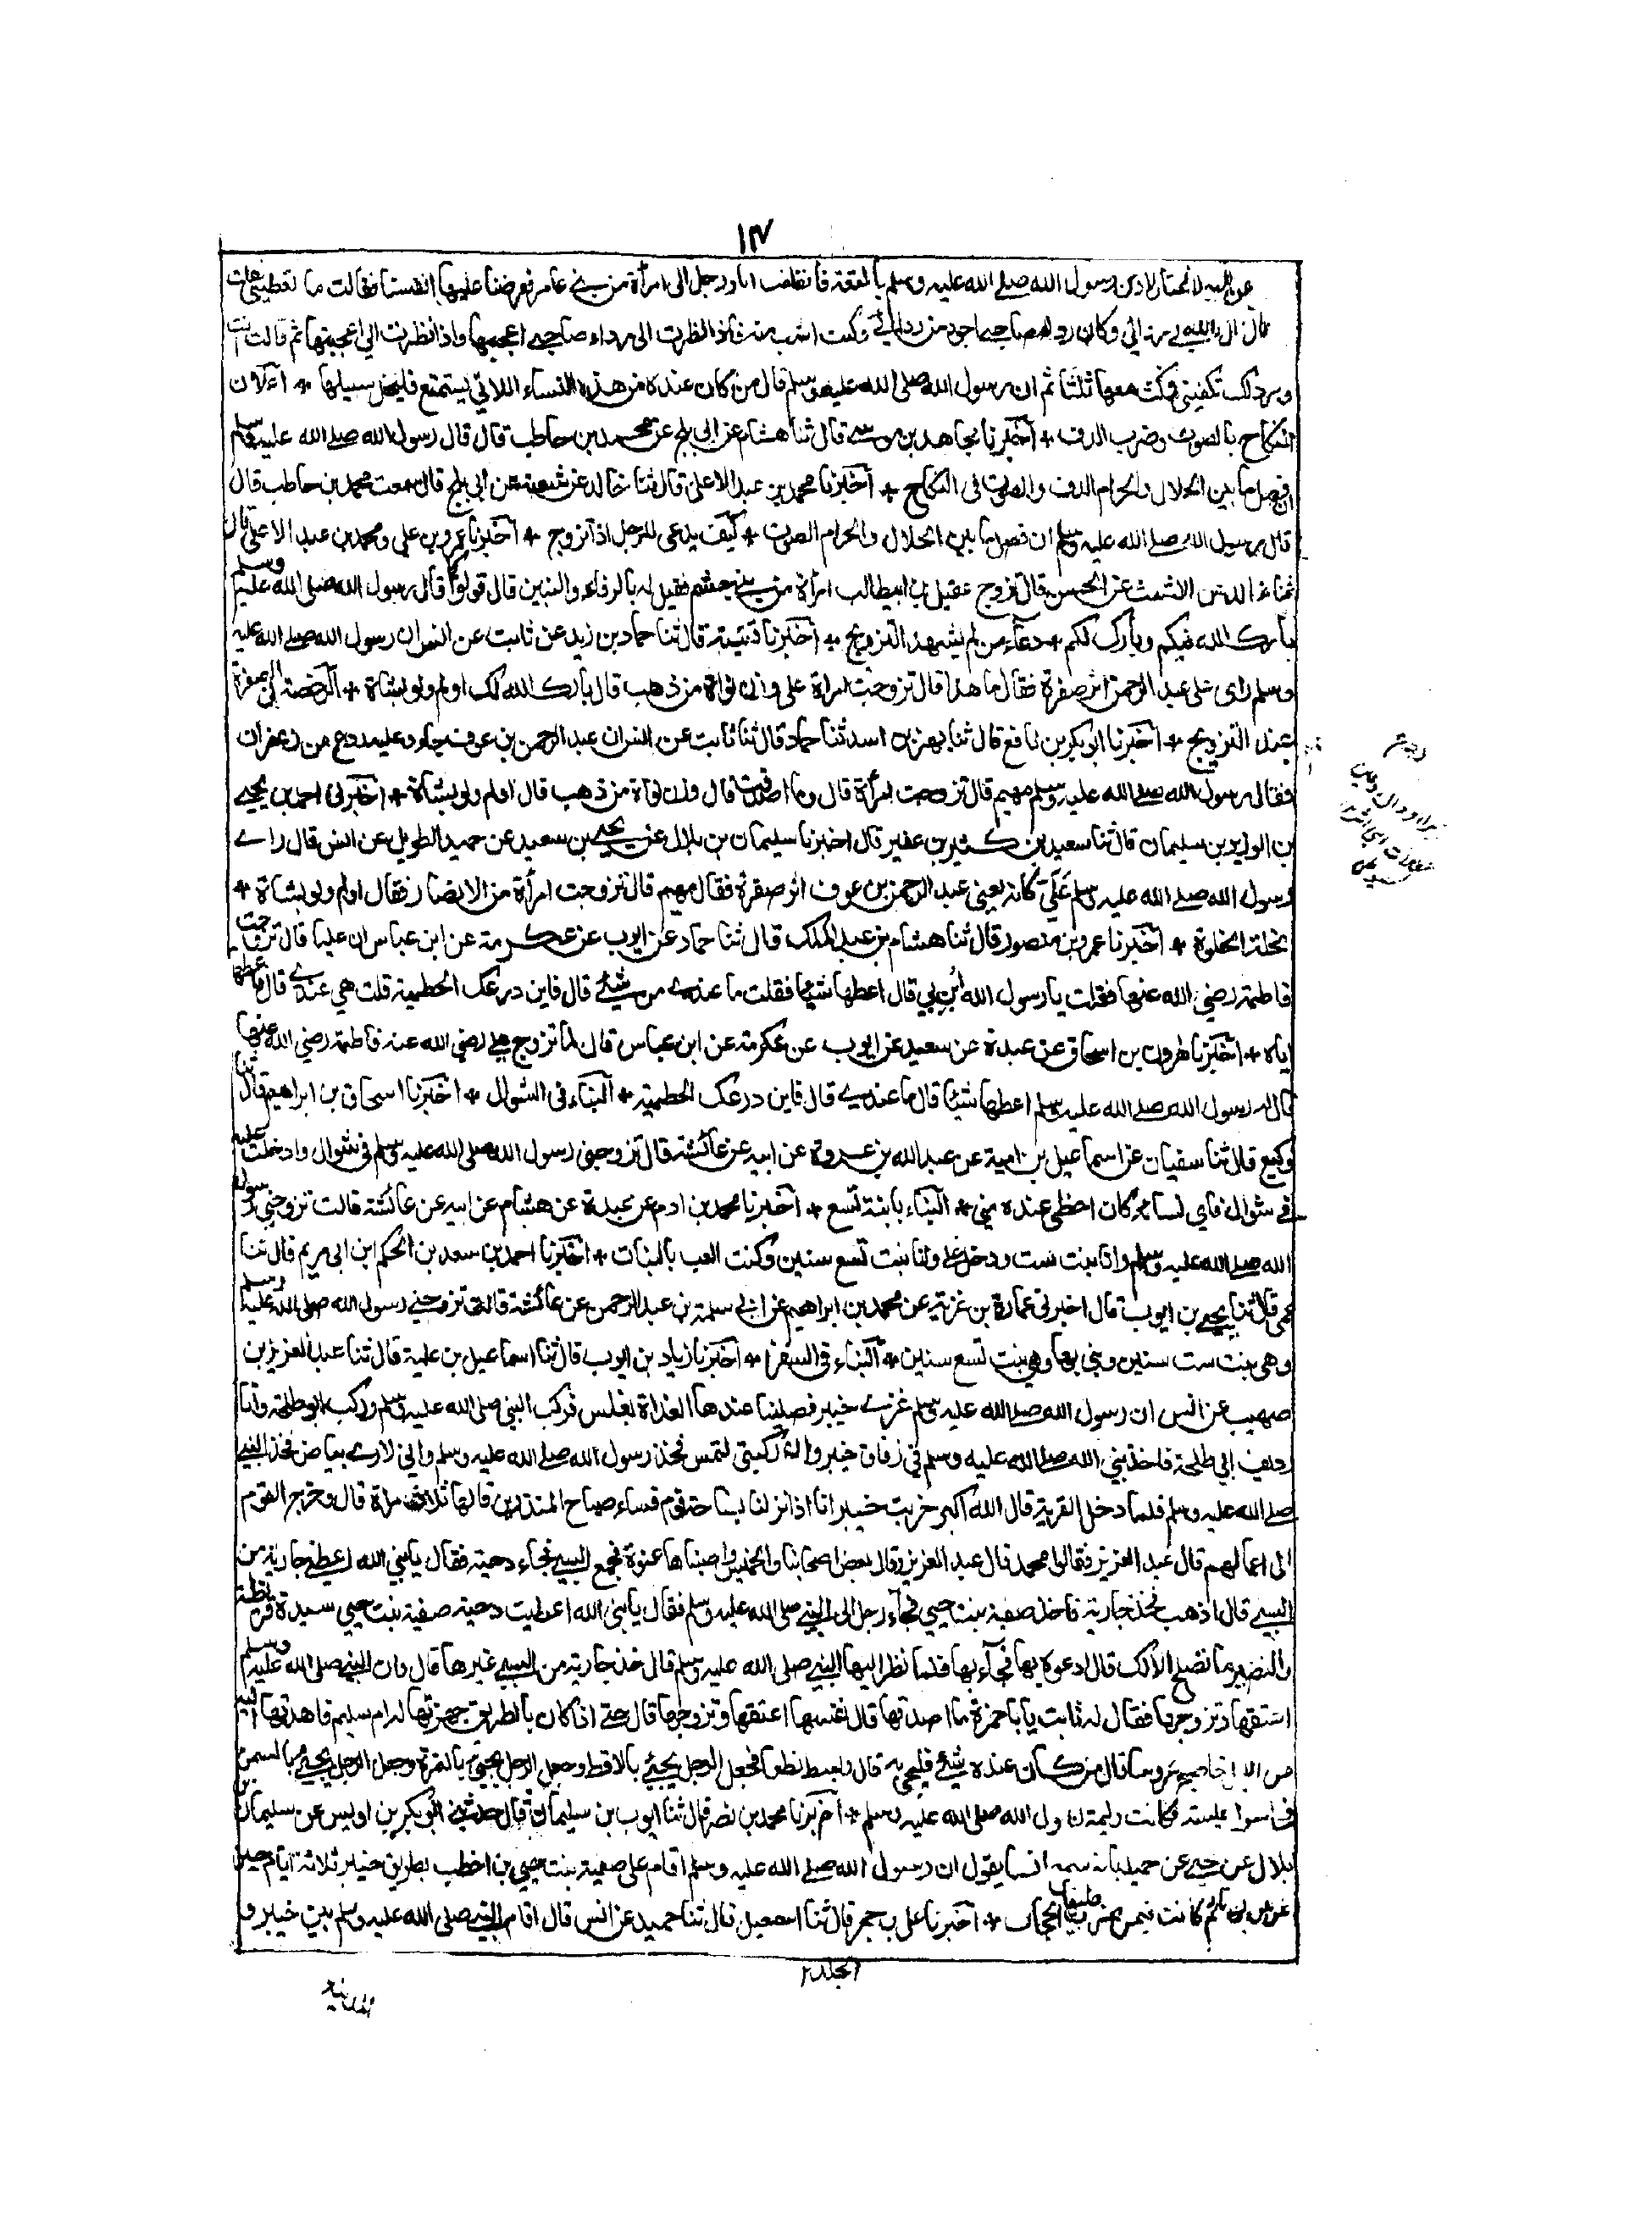 رسول الله صلے الله عليه وسلم بالمتعة فانطلقت انا ورجل الى امرأة من بنے عامر فعرضنا عليها انفسنا فقالت ما تعطينى
وكان رداء صاحبے اجود من ردائى وكنت اشب منه فاذا نظرت الى رداء صاحبے اعجبها واذا نظرت الي اعجبتها ثم قالت انت
ورداؤك تكفينى فمكثت معها ثلثا ثم ان رسول الله صلى الله عليه وسلم قال من كان عنده من هذه النساء اللاتي يستمتع فليخل سبيلها + اعلان
النكاح بالصوت وضرب الدف + اخبرنا مجاهد بن موسے قال ثنا هشيم عن ابى بلج عن محمد بن حاطب قال قال رسول الله صلے الله عليه وسلم
فصل ما بين الحلال والحرام الدف والصوت فى النكاح + اخبرنا محمد بن عبد الاعلى قال ثنا خالد عن شعبة عن ابى بلج قال سمعت محمد بن حاطب قال
قال رسول الله صلے الله عليه وسلم ان فصل ما بين الحلال والحرام الصوت + كيف يدعى للرجل اذا تزوج + اخبرنا عمرو بن علي ومحمد بن عبد الاعلى قال
ثنا خالد عن الاشعث عن الحسن قال تزوج عقيل بن ابيطالب امرأة من بنے جشم فقيل له بالرفاء والبنين قال قولوا كما قال رسول الله صلى الله عليه وسلم
بارك الله فيكم وبارك لكم + دعاء من لم يشهد التزويج + اخبرنا قتيبة قال ثنا حماد بن زيد عن ثابت عن انس ان رسول الله صلے الله عليه
وسلم راى على عبد الرحمن اثر صفرة فقال ما هذا قال تزوجت امراة على وزن نواة من ذهب قال بارك الله لك اولم ولو بشاة + الرخصة فى الصفرة
عند التزويج + اخبرنا ابو بكر بن نافع قال ثنا بهز بن اسد ثنا حماد قال ثنا ثابت عن انس ان عبد الرحمن بن عوف جاء وعليه ردع من زعفران
فقال رسول الله صلے الله عليه وسلم مهيم قال تزوجت امرأة قال وما اصدقت قال وزن نواة من ذهب قال اولم ولو بشاة + اخبرنى احمد بن يحيے
بن الوزير بن سليمان قال ثنا سعيد بن كثير بن عفير قال اخبرنا سليمان بن بلال عن يحيے بن سعيد عن حميد الطويل عن انس قال راے
رسول الله صلے الله عليه وسلم عَلَيَّ كانه يعنى عبد الرحمن بن عوف اثر صفرة فقال مهيم قال تزوجت امرأة من الانصار فقال اولم ولو بشاة +
نحلة الخلوة + اخبرنا عمرو بن منصور قال ثنا هشام بن عبد الملك قال ثنا حماد عن ايوب عن عكرمة عن ابن عباس ان عليا قال تزوجت
فاطمة رضي الله عنها فقلت يا رسول الله ابن بي قال اعطها شيئا فقلت ما عندے من شئے قال فاين درعك الحطمية قلت هي عندے قال فاعطها
اياه + اخبرنا هرون بن اسحاق عن عبدة عن سعيد عن ايوب عن عكرمة عن ابن عباس قال لما تزوج علے رضي الله عنه فاطمة رضي الله عنها
قال له رسول الله صلے الله عليه وسلم اعطها شيئا قال ما عندے قال فاين درعك الحطمية + البناء فى الشوال + اخبرنا اسحاق بن ابراهيم قال ثنا
وكيع قال ثنا سفيان عن اسماعيل بن امية عن عبد الله بن عروة عن ابيه عن عائشة قالت تزوجنى رسول الله صلى الله عليه وسلم فى شوال وادخلت عليه
فے شوال فاي نسائه كان احظى عنده منى + البناء بابنة تسع + اخبرنا محمد بن ادم عن عبدة عن هشام عن ابيه عن عائشة قالت تزوجنى رسول
الله صلے الله عليه وسلم وانا بنت ست ودخل علي وانا بنت تسع سنين وكنت العب بالبنات + اخبرنا احمد بن سعد بن الحكم ابن ابى مريم قال ثنا
عمى قال ثنا يحيے بن ايوب قال اخبرنى عمارة بن غزية عن محمد بن ابراهيم عن ابى سلمة بن عبد الرحمن عن عائشة قالت تزوجنے رسول الله صلى الله عليه وسلم
وهى بنت ست سنين وبنى بها وهى بنت تسع سنين + البناء فى السفر + اخبرنا زياد بن ايوب قال ثنا اسماعيل بن علية قال ثنا عبد العزيز بن
صهيب عن انس ان رسول الله صلے الله عليه وسلم غزے خيبر فصلينا عندها الغداة بغلس فركب النبي صلى الله عليه وسلم وركب ابو طلحة وانا
رديف ابي طلحة فاخذ نبي الله صلے الله عليه وسلم في زقاق خيبر وان ركبتى لتمس فخذ رسول الله صلے الله عليه وسلم واني لارے بياض فخذ النبے
صلے الله عليه وسلم فلما دخل القرية قال الله اكبر خربت خيبر انا اذا نزلنا بساحة قوم فساء صباح المنذرين قالها ثلاث مراة قال وخرج القوم
الى اعمالهم قال عبد العزيز فقالوا محمد قال عبد العزيز وقال بعض اصحابنا والخميس واصبناها عنوة فجمع السبے فجاء دحية فقال يا نبي الله اعطنے جارية من
السبے قال اذهب فخذ جارية فاخذ صفية بنت حيي فجاء رجل الى النبے صلى الله عليه وسلم فقال يا نبى الله اعطيت دحية صفية بنت حيي سيدة قريظة
والنضير ما تصلح الا لك قال ادعوه بها فجاء بها فلما نظر اليها النبے صلى الله عليه وسلم قال خذ جارية من السبے غيرها قال وان النبے صلى الله عليه وسلم
اعتقها وتزوجها فقال له ثابت يا با حمزة ما اصدقها قال نفسها اعتقها وتزوجها قال حتے اذا كان بالطريق جهزتها له ام سليم فاهدتها اليه
من الليل فاصبح عروسا قال من كان عنده شئے فليجئ به قال وبسط نطعا فجعل الرجل يجئے بالاقط وجعل الرجل يجيئ بالتمرة وجعل الرجل يجيئے بالسمن
فحاسوا حيسة فكانت وليمة رسول الله صلى الله عليه وسلم + اخبرنا محمد بن نصر قال ثنا ايوب بن سليمان قال حدثنے ابو بكر بن اويس عن سليمان بن
بلال عن يحيے عن حميد انه سمع انسا يقول ان رسول الله صلے الله عليه وسلم اقام على صفية بنت حيي بن اخطب بطريق خيبر ثلاثة ايام حين
عرس بها ثم كانت فيمن ضرب عليها الحجاب + اخبرنا على بن حجر قال ثنا اسمعيل قال ثنا حميد عن انس قال اقام النبے صلى الله عليه وسلم بين خيبر و